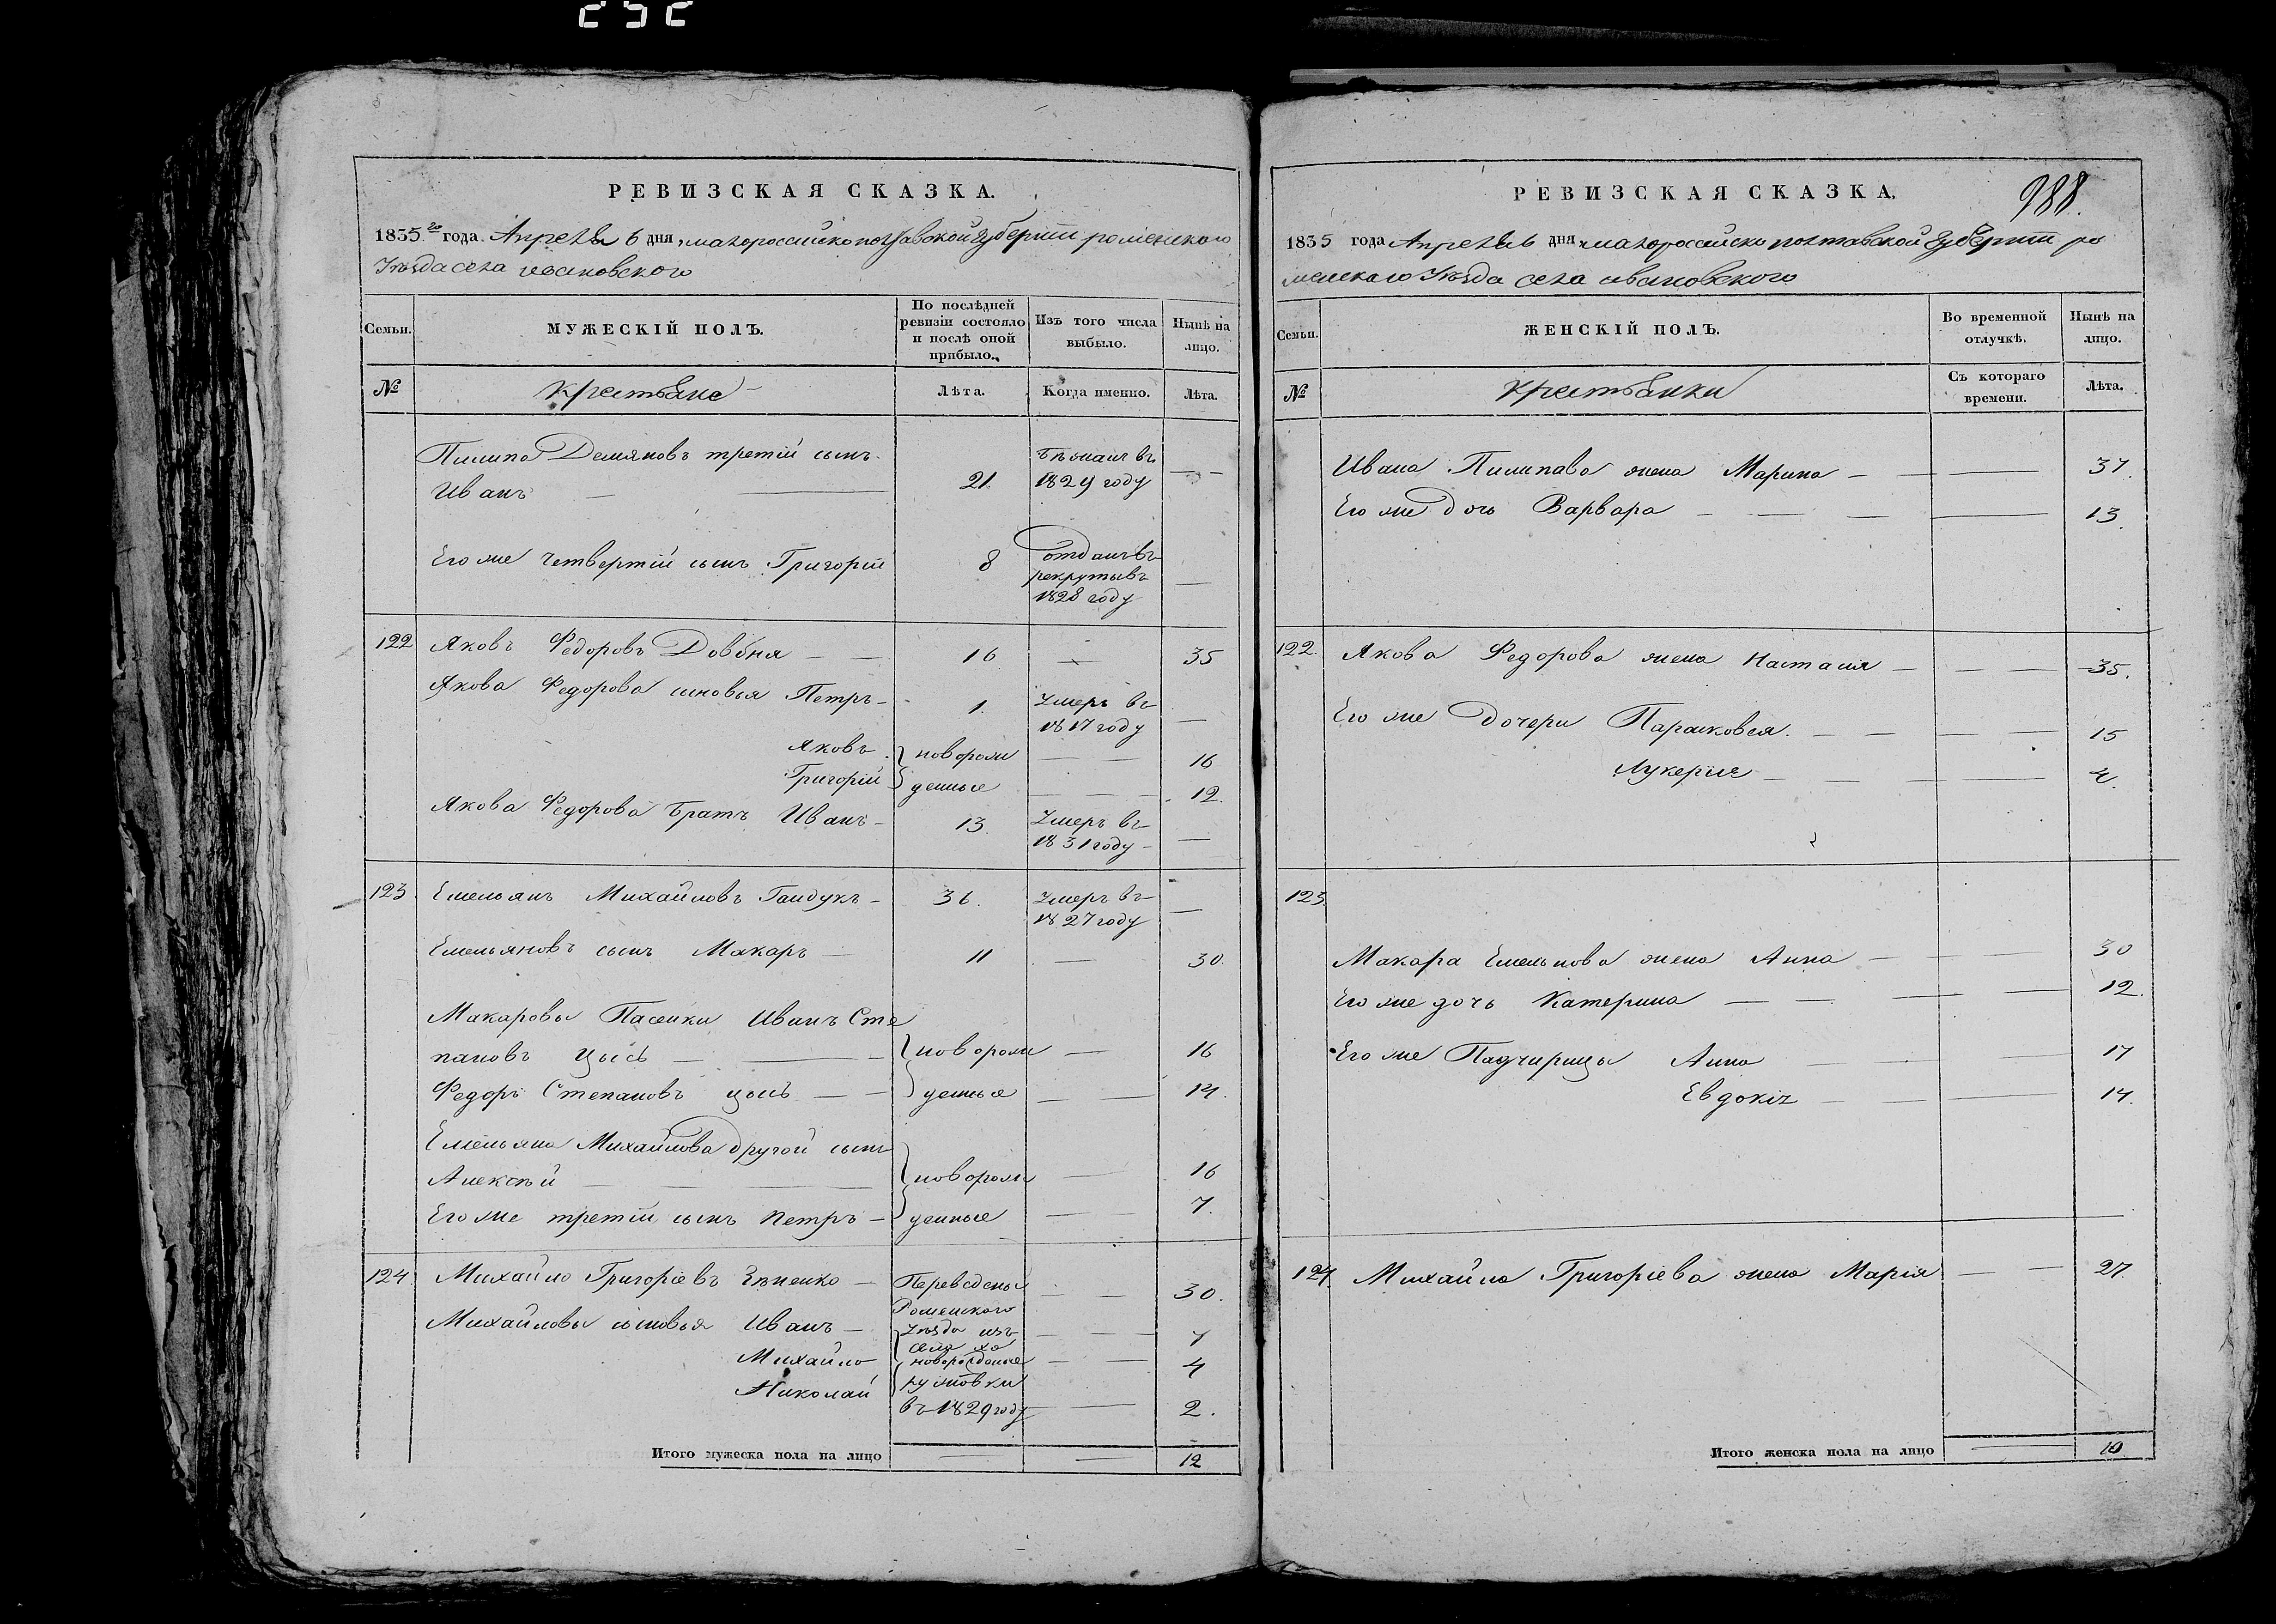 РЕВИЗСКАЯ СКАЗКА.
1835го года Апреля 6 дня, малороссийско полтавской губернии роменского
Уѣзда села ивановского
Семьи. МУЖЕСКІЙ ПОЛЪ. По послѣдней ревизіи состояло и послѣ оной прибыло. Изъ того числа выбыло. Нынѣ на лицо.
№ Крестьяне Лѣта. Когда именно. Лѣта.
Пилипа Демяновъ третій сынъ
Бѣжалъ въ
Иванъ — — 21. 1829 году — —
отданъ въ
Его же четвертій сынъ Григорій 8 рекруты въ —
1828 году
122 Яковъ Федоровъ Довбня — — 16 — 35
Якова Федорова синовья Петръ — 1. Умеръ въ
1817 году —
Яковъ новорож — — 16
Григорій денные — — — 12.
Якова Федорова братъ Иванъ — 13. Умеръ въ
1831 году — —
123 Емельянъ Михайловъ Гайдукъ — 36. Умеръ въ
1827 году —
Емельяновъ сынъ Макаръ — 11 — 30.
Макаровы Пасенки Иванъ Сте
пановъ Цысь — — — новорож — 16
Федоръ Степановъ цысь — — денные — — 14.
Емельяна Михайлова другой сынъ
Алексѣй — — — новорож — 16
Его же третій сынъ Петръ — денные — — 7.
124 Михайло Григоріевъ — Переведены — — 30.
Роменского
Михайловы синовья Иванъ — Уѣзда изъ — — — 7
села
Михайло новорожденые — — 4
Николай
въ 1829 году — 2.
Итого мужеска пола на лицо — — 12
988.
РЕВИЗСКАЯ СКАЗКА.
1835 года Апреля 6 дня малороссийско полтавской губернии ро
менского Уѣзда села ивановского
Семьи. ЖЕНСКІЙ ПОЛЪ. Во временной отлучкѣ. Нынѣ на лицо.
№ Крестьянки Съ котораго времени. Лѣта.
Ивана Пилипова жена Марина — — 37.
Его же дочь Варвара — — — — 13.
122. Якова Федорова жена Настасия — — — 35.
Его же дочери Парасковея. — — — — 15
Лукерия — — — — 4.
123.
Макара Емельянова жена Анна — — — 30
Его же дочь Катерина — — — — 12.
Его же Падчирицы Анна — — 17
Евдокія — — — 14.
124. Михайла Григоріева жена Марія — — 27.
Итого женска пола на лицо — 10